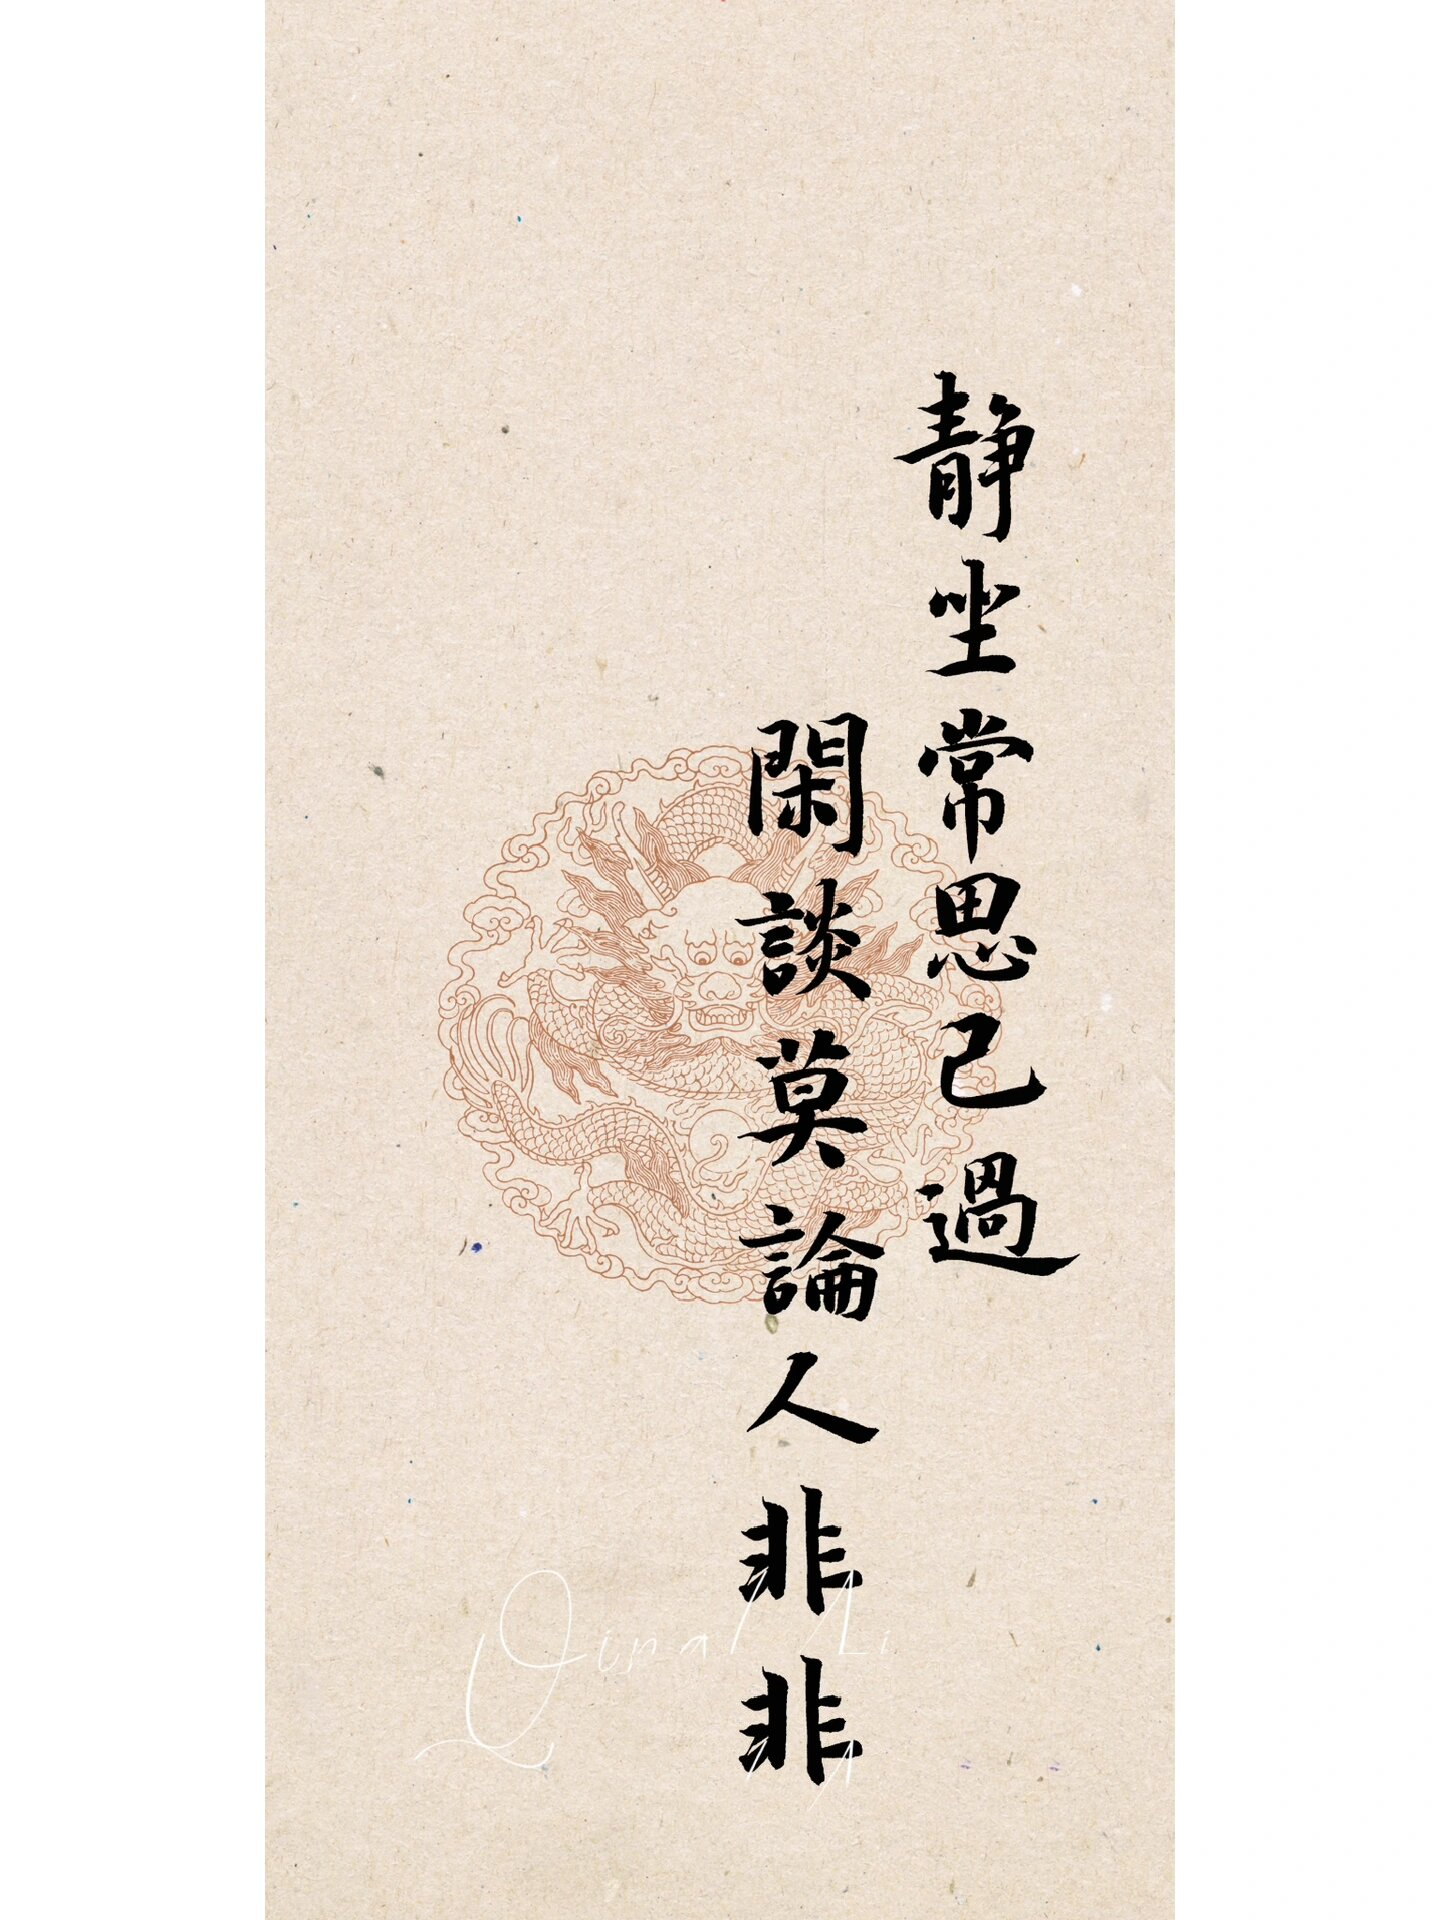 静坐常思己過
閑談莫論人非非